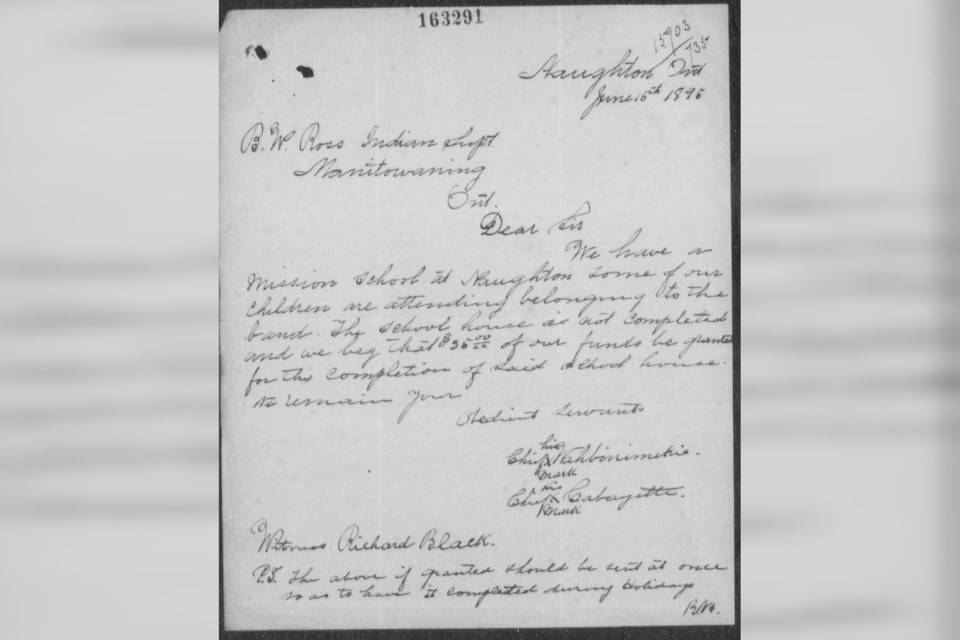 163291
15903
/735
Naughton Ont
June 15th 1895
B. W. Ross Indian Supt.
Manitowaning
Ont.
Dear Sir
We have a
Mission School at Naughton some of our
children are attending belonging to the
band. The School house is not completed
and we beg that $25 00/00 of our funds be granted
for the completion of said school house.
We remain your
Obedient Servants
his
Chief X
mark
his
Chief X Cabayette.
mark
Witness Richard Black.
P.S. The above if granted should be sent at once
so as to have it completed during Holidays